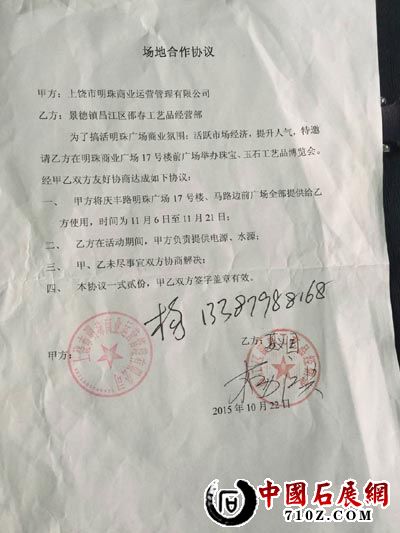 场地合作协议
甲方：上饶市明珠商业运营管理有限公司
乙方：景德镇昌江区邵春工艺品经营部
为了搞活明珠广场商业氛围；活跃市场经济，提升人气，特邀
请乙方在明珠商业广场17号楼前广场举办珠宝、玉石工艺品博览会。
经甲乙双方友好协商达成如下协议：
一、 甲方将庆丰路明珠广场17号楼、马路边前广场全部提供给乙
方使用，时间为11月6日至11月21日；
二、 乙方在活动期间，甲方负责提供电源、水源；
三、 甲、乙未尽事宜双方协商解决；
四、 本协议一式贰份，甲乙双方签字盖章有效。
13387988168
甲方：
乙方：
2015年10月22日
中國石展網
710Z.COM